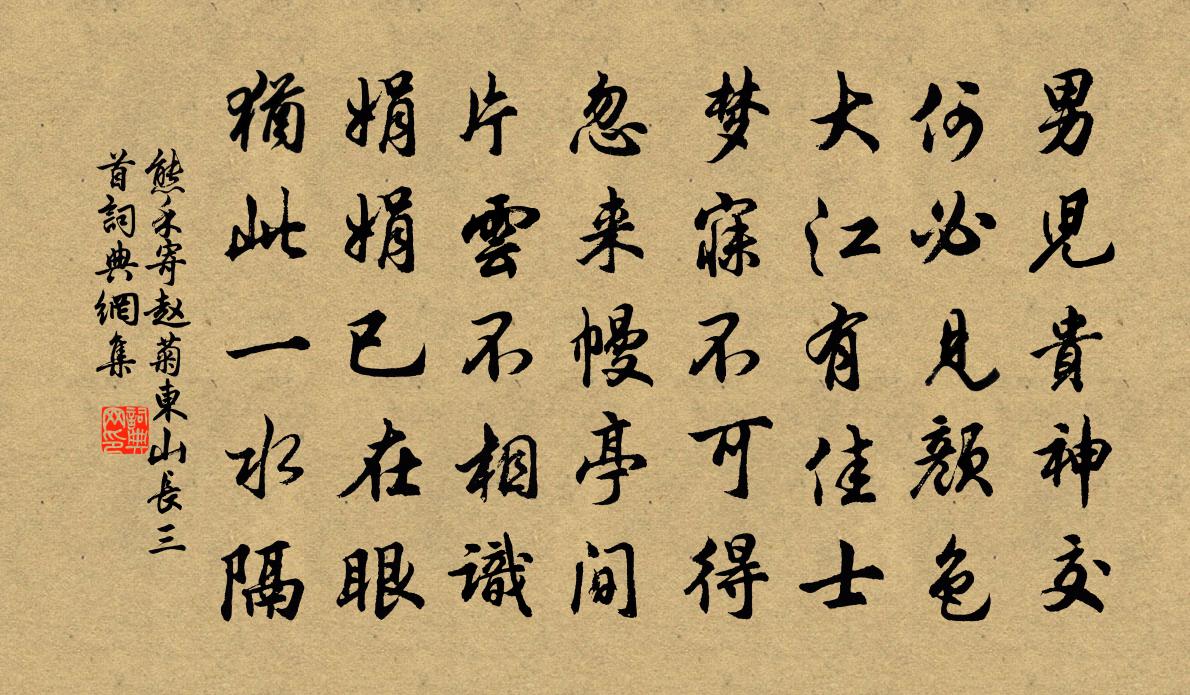 男児貴神交
何必見顔色
大江有佳士
梦寐不可得
忽来幔亭間
片雲不相識
娟娟已在眼
猶此一水隔
熊禾寄赵菊東山長三
首詞典網集
詞典
网印